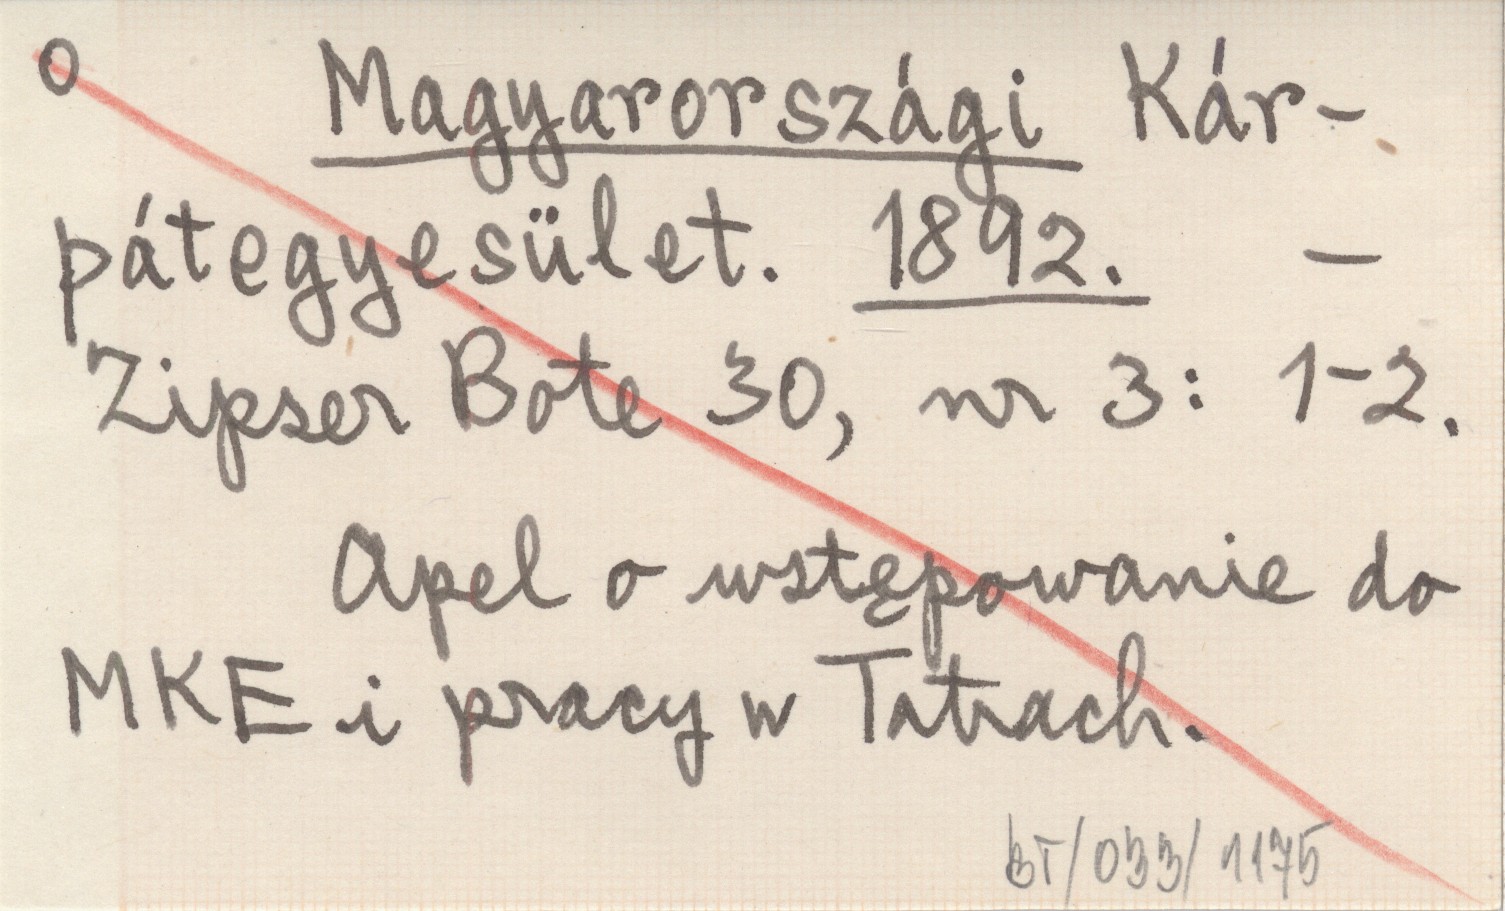 O Magyarországi Kár-
pátegyesület. 1892. —
Zipser Bote 30, nr 3: 1-2.
Apel o wstępowanie do
MKE i pracy w Tatrach.
BT/033/1175